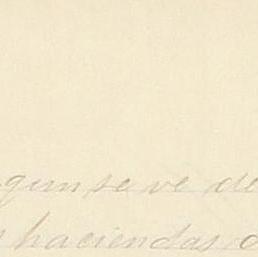 gun se ve de
haciendas d